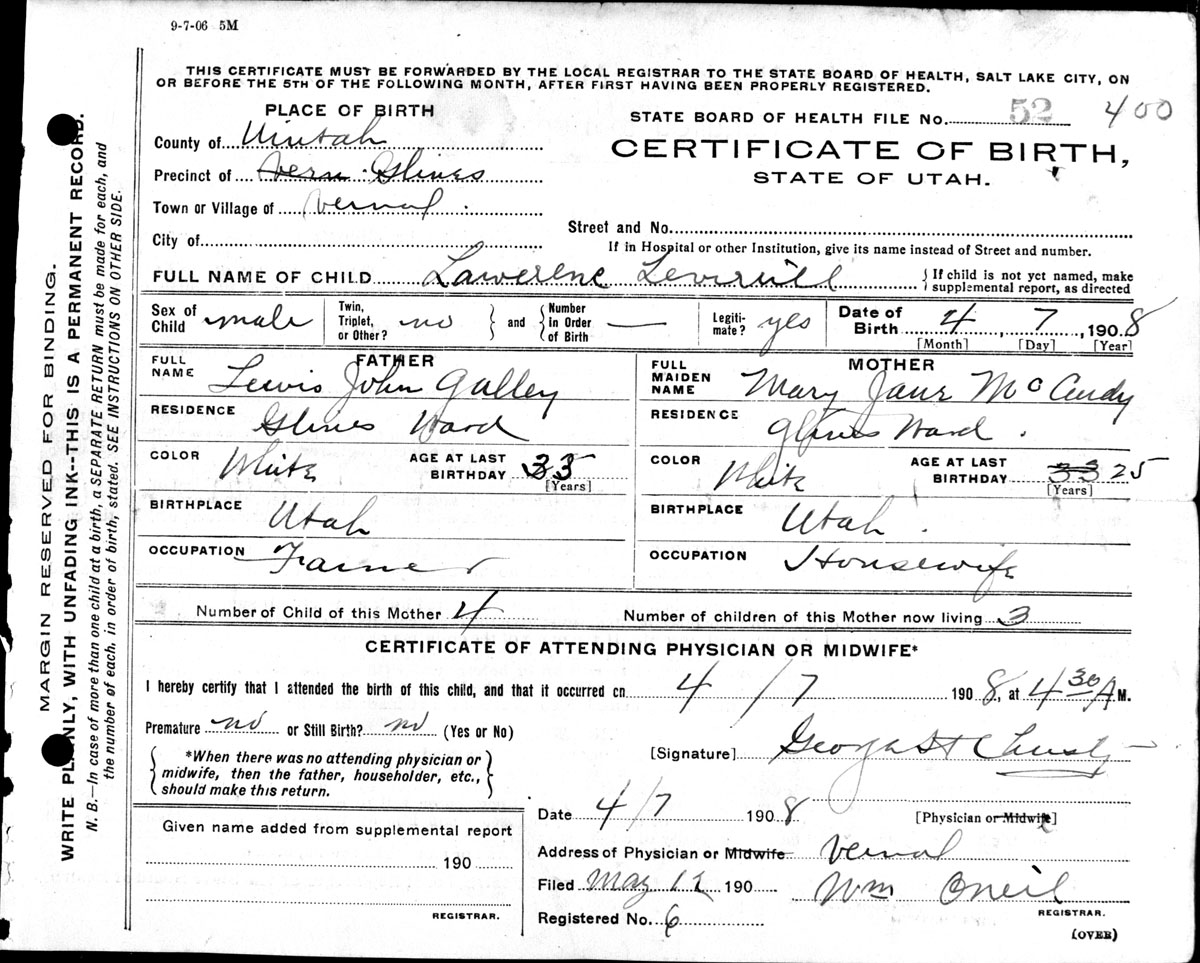 9-7-06 5M
THIS CERTIFICATE MUST BE FORWARDED BY THE LOCAL REGISTRAR TO THE STATE BOARD OF HEALTH, SALT LAKE CITY, ON
OR BEFORE THE 5TH OF THE FOLLOWING MONTH, AFTER FIRST HAVING BEEN PROPERLY REGISTERED.
PLACE OF BIRTH
STATE BOARD OF HEALTH FILE No. 52 400
County of Uintah
CERTIFICATE OF BIRTH,
STATE OF UTAH.
Precinct of Vern Glines
Town or Village of Vernal
Street and No.
City of
If in Hospital or other Institution, give its name instead of Street and number.
FULL NAME OF CHILD Lawerene { If child is not yet named, make supplemental report, as directed
Sex of Child male Twin, Triplet, or Other? no } and { Number in Order of Birth — Legiti-mate? yes Date of Birth 4, 7, 1908
[Month] [Day] [Year]
FATHER
FULL NAME Lewis John Galley
RESIDENCE Glines Ward
COLOR White AGE AT LAST BIRTHDAY 33 [Years]
BIRTHPLACE Utah
OCCUPATION Farmer
MOTHER
FULL MAIDEN NAME Mary Jane
RESIDENCE Glines Ward.
COLOR White AGE AT LAST BIRTHDAY 33 25 [Years]
BIRTHPLACE Utah.
OCCUPATION Housewife
Number of Child of this Mother 4 Number of children of this Mother now living 3
CERTIFICATE OF ATTENDING PHYSICIAN OR MIDWIFE*
I hereby certify that I attended the birth of this child, and that it occurred on 4/7 1908, at 4 30 A M.
Premature no or Still Birth? no (Yes or No)
*When there was no attending physician or
midwife, then the father, householder, etc.,
should make this return.
[Signature] George
Date 4/7 1908 [Physician or Midwife]
Given name added from supplemental report
190
REGISTRAR.
Address of Physician or Midwife Vernal
Filed May 12 190 Wm Oneil
REGISTRAR.
Registered No. 6
(OVER)
MARGIN RESERVED FOR BINDING.
WRITE PLAINLY, WITH UNFADING INK--THIS IS A PERMANENT RECORD.
N. B.—In case of more than one child at a birth, a SEPARATE RETURN must be made for each, and
the number of each, in order of birth, stated. SEE INSTRUCTIONS ON OTHER SIDE.